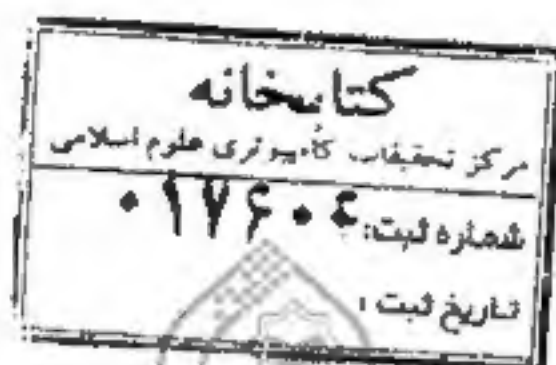 کتابخانه
مرکز تحقیقات کامپیوتری علوم اسلامی
شماره ثبت: ۰۱۷۶۰۴
تاریخ ثبت :